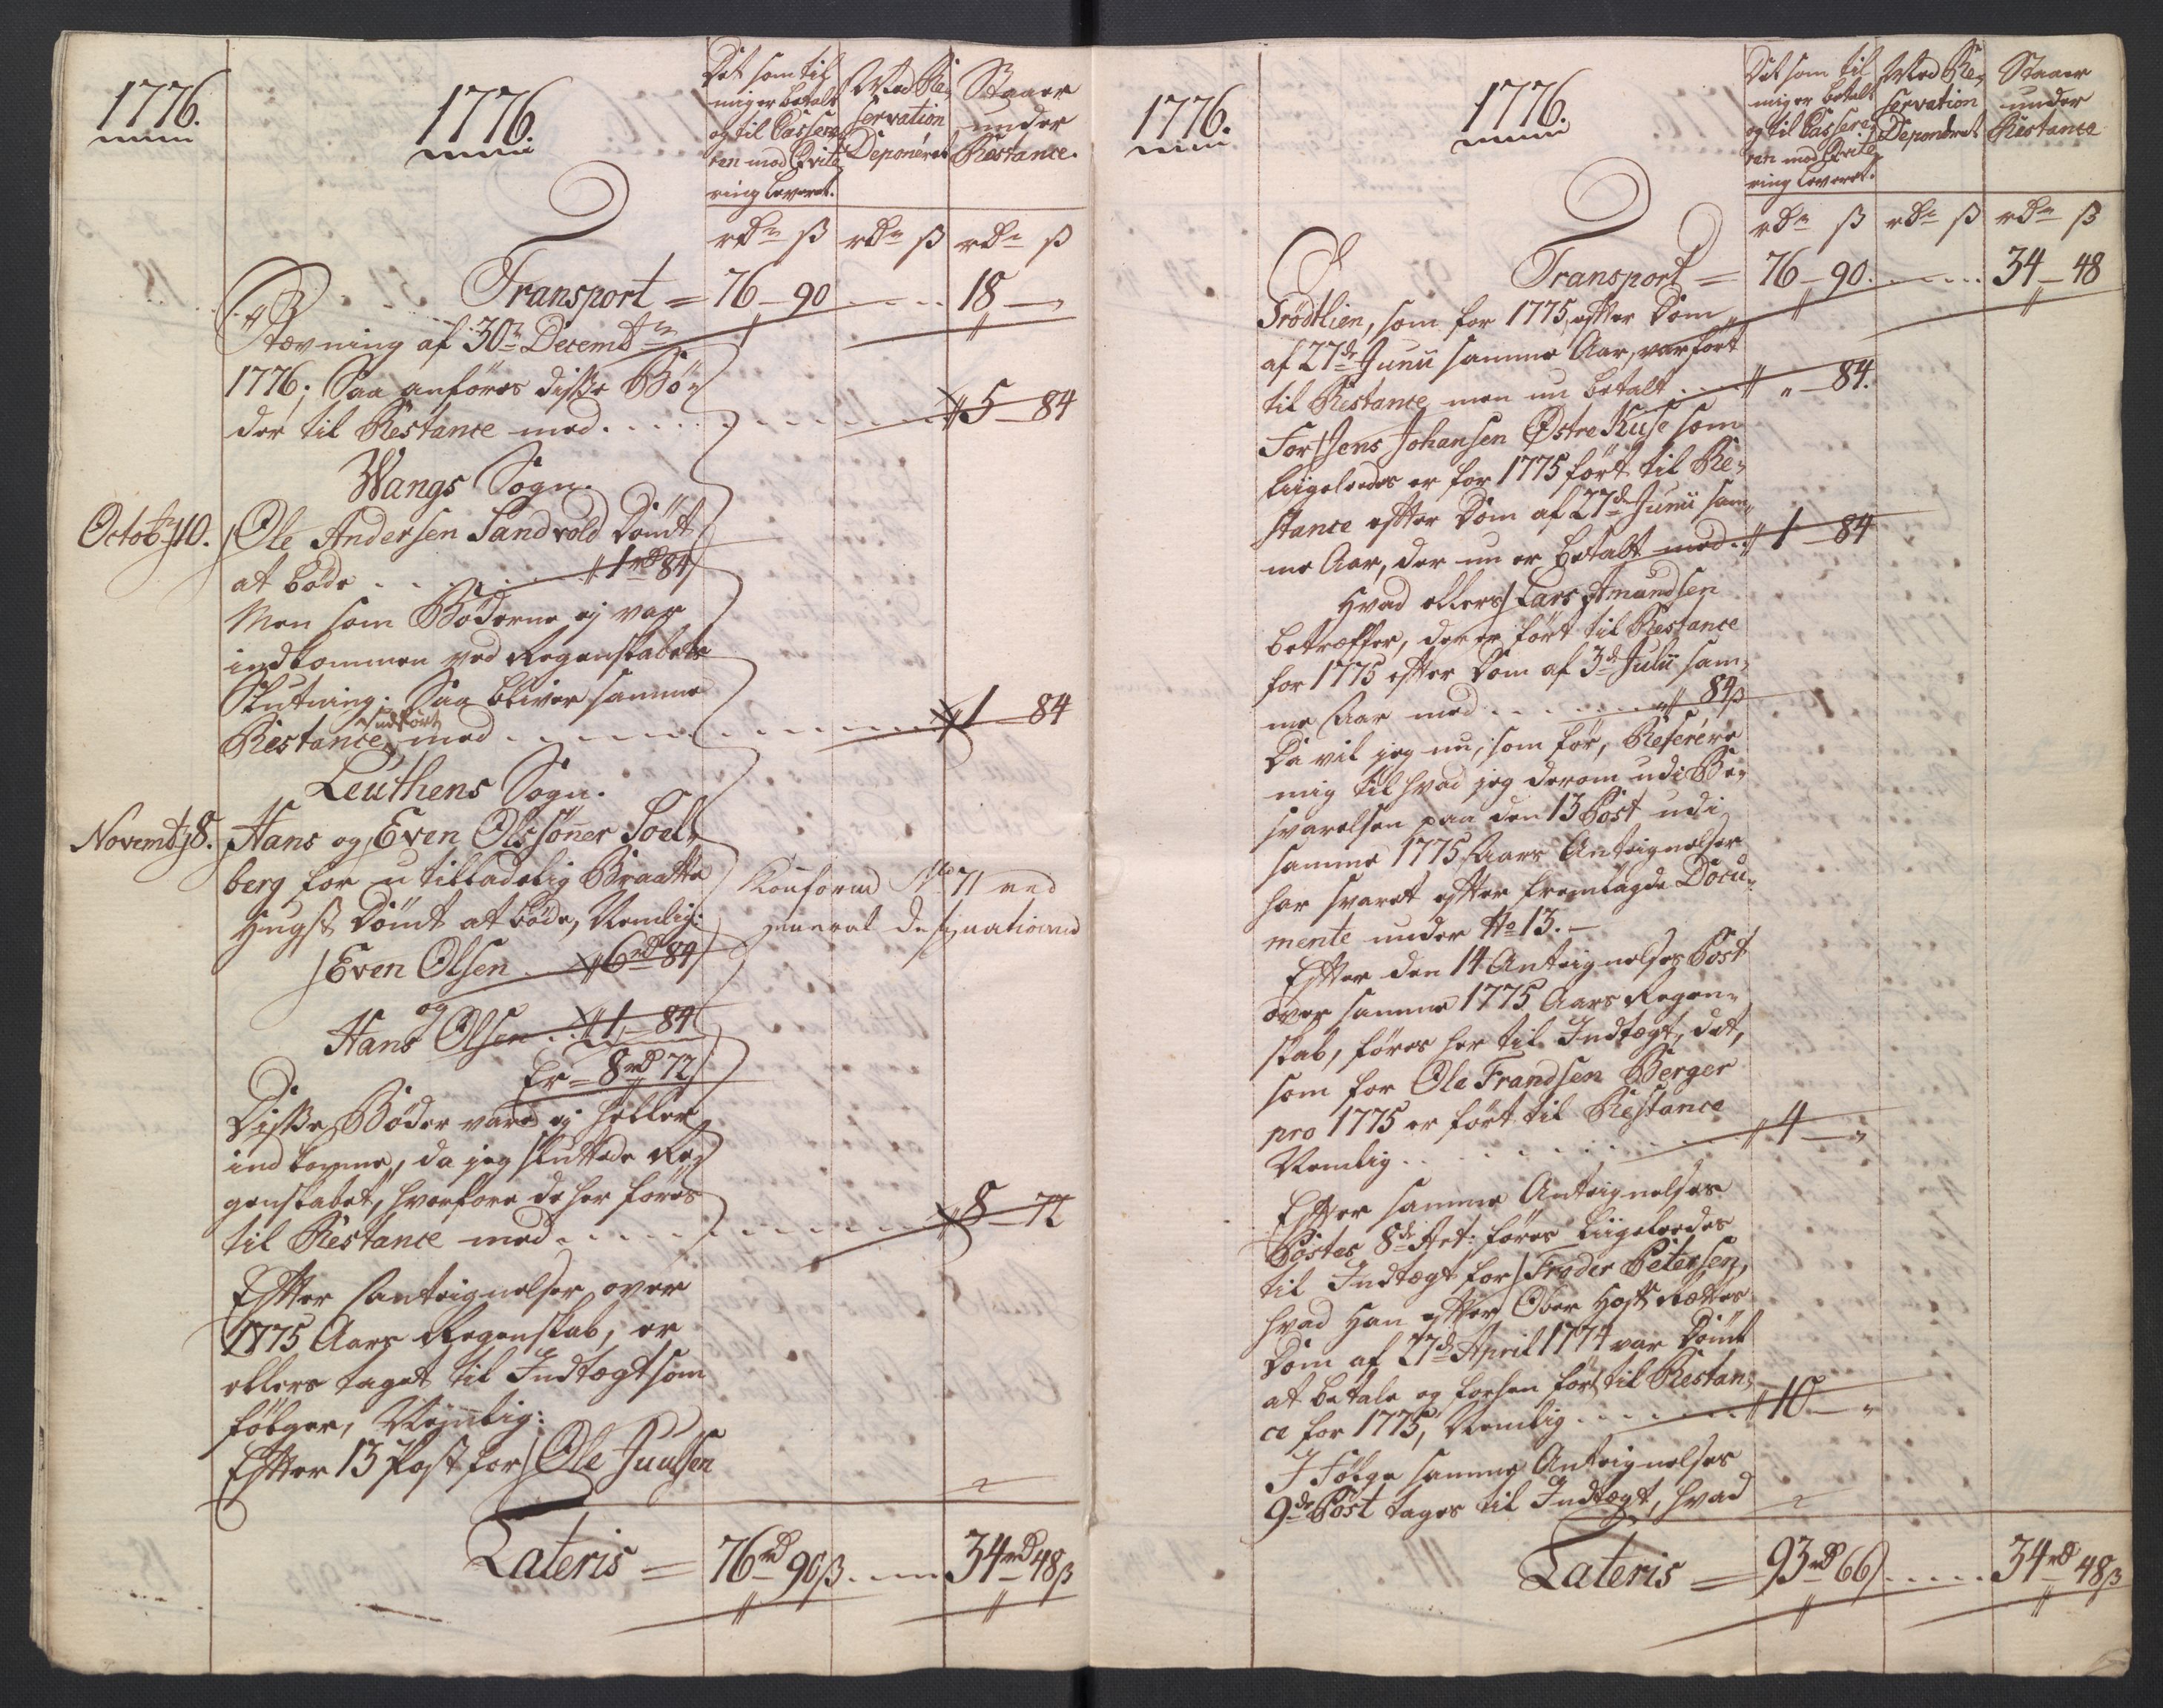 1776.
1776.
Det som til
mig er betalt
og til Casseren
ren med Qvite
ring leveret.
Med Re-
servation
Deponéret
Staaer
under
Restance.
rdr ß rdr ß rdr ß
Transport = 76 - 90 18 -
Stævning af 30te Decembr
1776; Saa anføres disse Bø-
der til Restance med . . . . 5 - 84
Wangs Sogn.
Octobr 10.
Ole Andersen Sandvold Dömt
at bøde . . . 1 rd 84
Men som Bøderne ej var
indkommen ved Regenskabets
Slutning. Saa bliver samme
Restance indført med . . . . 1 - 84
Leuthens Sogn.
Novembr 8.
Hans og Even Olssøner Soel-
berg for utilladelig Braatte
Hugst Dömt at bøde, Nemlig:
Konform No 71 ved
general designationen
Even Olsen . . 6 rd 84
og
Hans Olsen . . 1 - 84
Er = 8 rd 72
Disse Bøder vare ej heller
indkomne, da jeg sluttede Re-
genskabet, hvorfore de her føres
til Restance med . . . . 8 - 72
Efter Antegnelser over
1775 Aars Regenskab, er
ellers taget til Indtægt som
følger, Nemlig:
Efter 13 Post for Ole Juulsen
Lateris = 76 rd 90 ß . . . 34 rd 48 ß
1776.
1776.
Det som til
mig er betalt
og til Cassere-
ren med Qvite-
ring leveret.
Med Re-
servation
Deponéret
Staaer
under
Restance
rdr ß rdr ß rdr ß
Transport = 76 - 90 . . . . 34 - 48
Trødtlien, som for 1775 efter Dom
af 27de Junii samme Aar, var ført
til Restance men nu betalt . . . " - 84.
For Jens Johansen Østre Kuse som
liigeledes er for 1775 ført til Re-
stance efter Dom af 27de Junii sam-
me Aar, der nu er betalt med . . 1 - 84
Hvad ellers Lars Amundsen
betræffer, der er ført til Restance
for 1775 efter Dom af 3de Julii sam-
me Aar med . . . . 84 ß
Da vil jeg nu, som før, Referére
mig til hvad jeg derom udi Be-
svarelsen paa den 13 Post udi
samme 1775 Aars Antegnelser
har svaret efter fremlagde Docu-
mente under No 13. -
Efter den 14 Antegnelses Post
over samme 1775 Aars Regen-
skab, føres her til Indtægt, det,
som for Ole Frandsen Berger
pro 1775 er ført til Restance
Nemlig . . . . 4 - "
Efter samme Antegnelses
Postes 8de Art: føres liigeledes
til Indtægt for Peder Petersen,
hvad Han efter Ober Hoff Rættes
Dom af 27de April 1774 var Dömt
at betale og forhen ført til Restan-
ce for 1775, Nemlig . . . . 10 - "
I Følge samme Antegnelses
9de Post tages til Indtægt, hvad
Lateris = 93 rd 66 . . . . 34 rd 48 ß